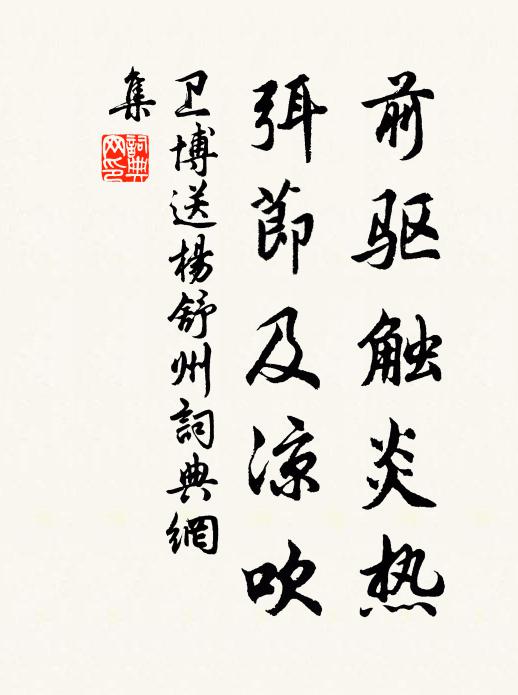 前驱触炎热
弭節及涼吹
卫博送楊舒州詞典網
集
詞典網印